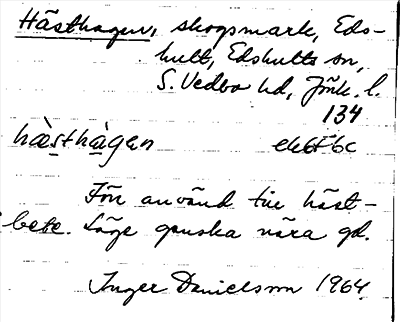 Hästhagen, skogsmark, Eds-
hult, Edshults sn,
S. Vedbo hd, Jönk. l.
134
hàsthàgen
Förr använd till häst-
bete. Läge ganska nära gd.
Inger Danielsson 1964